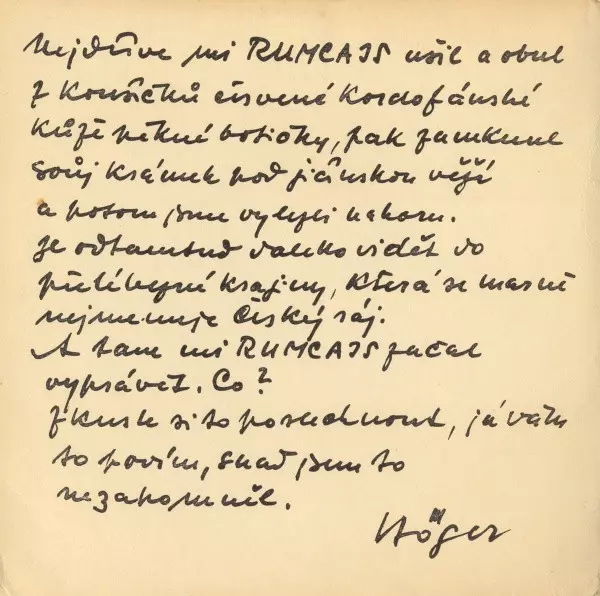 Nejdříve mi RUMCAJS ušil a obul
z kousíčků červené kordofánské
kůže pěkné botičky, pak zamknul
svůj krámek pod jičínskou věží
a potom jsme vylezli nahoru.
Je odtamtud daleko vidět do
přelíbezné krajiny, která se marně
nejmenuje Český ráj.
A tam mi RUMCAJS začal
vyprávět. Co?
Zkuste si to poslechnout, já vám
to povím, snad jsem to
nezapomněl.
Höger